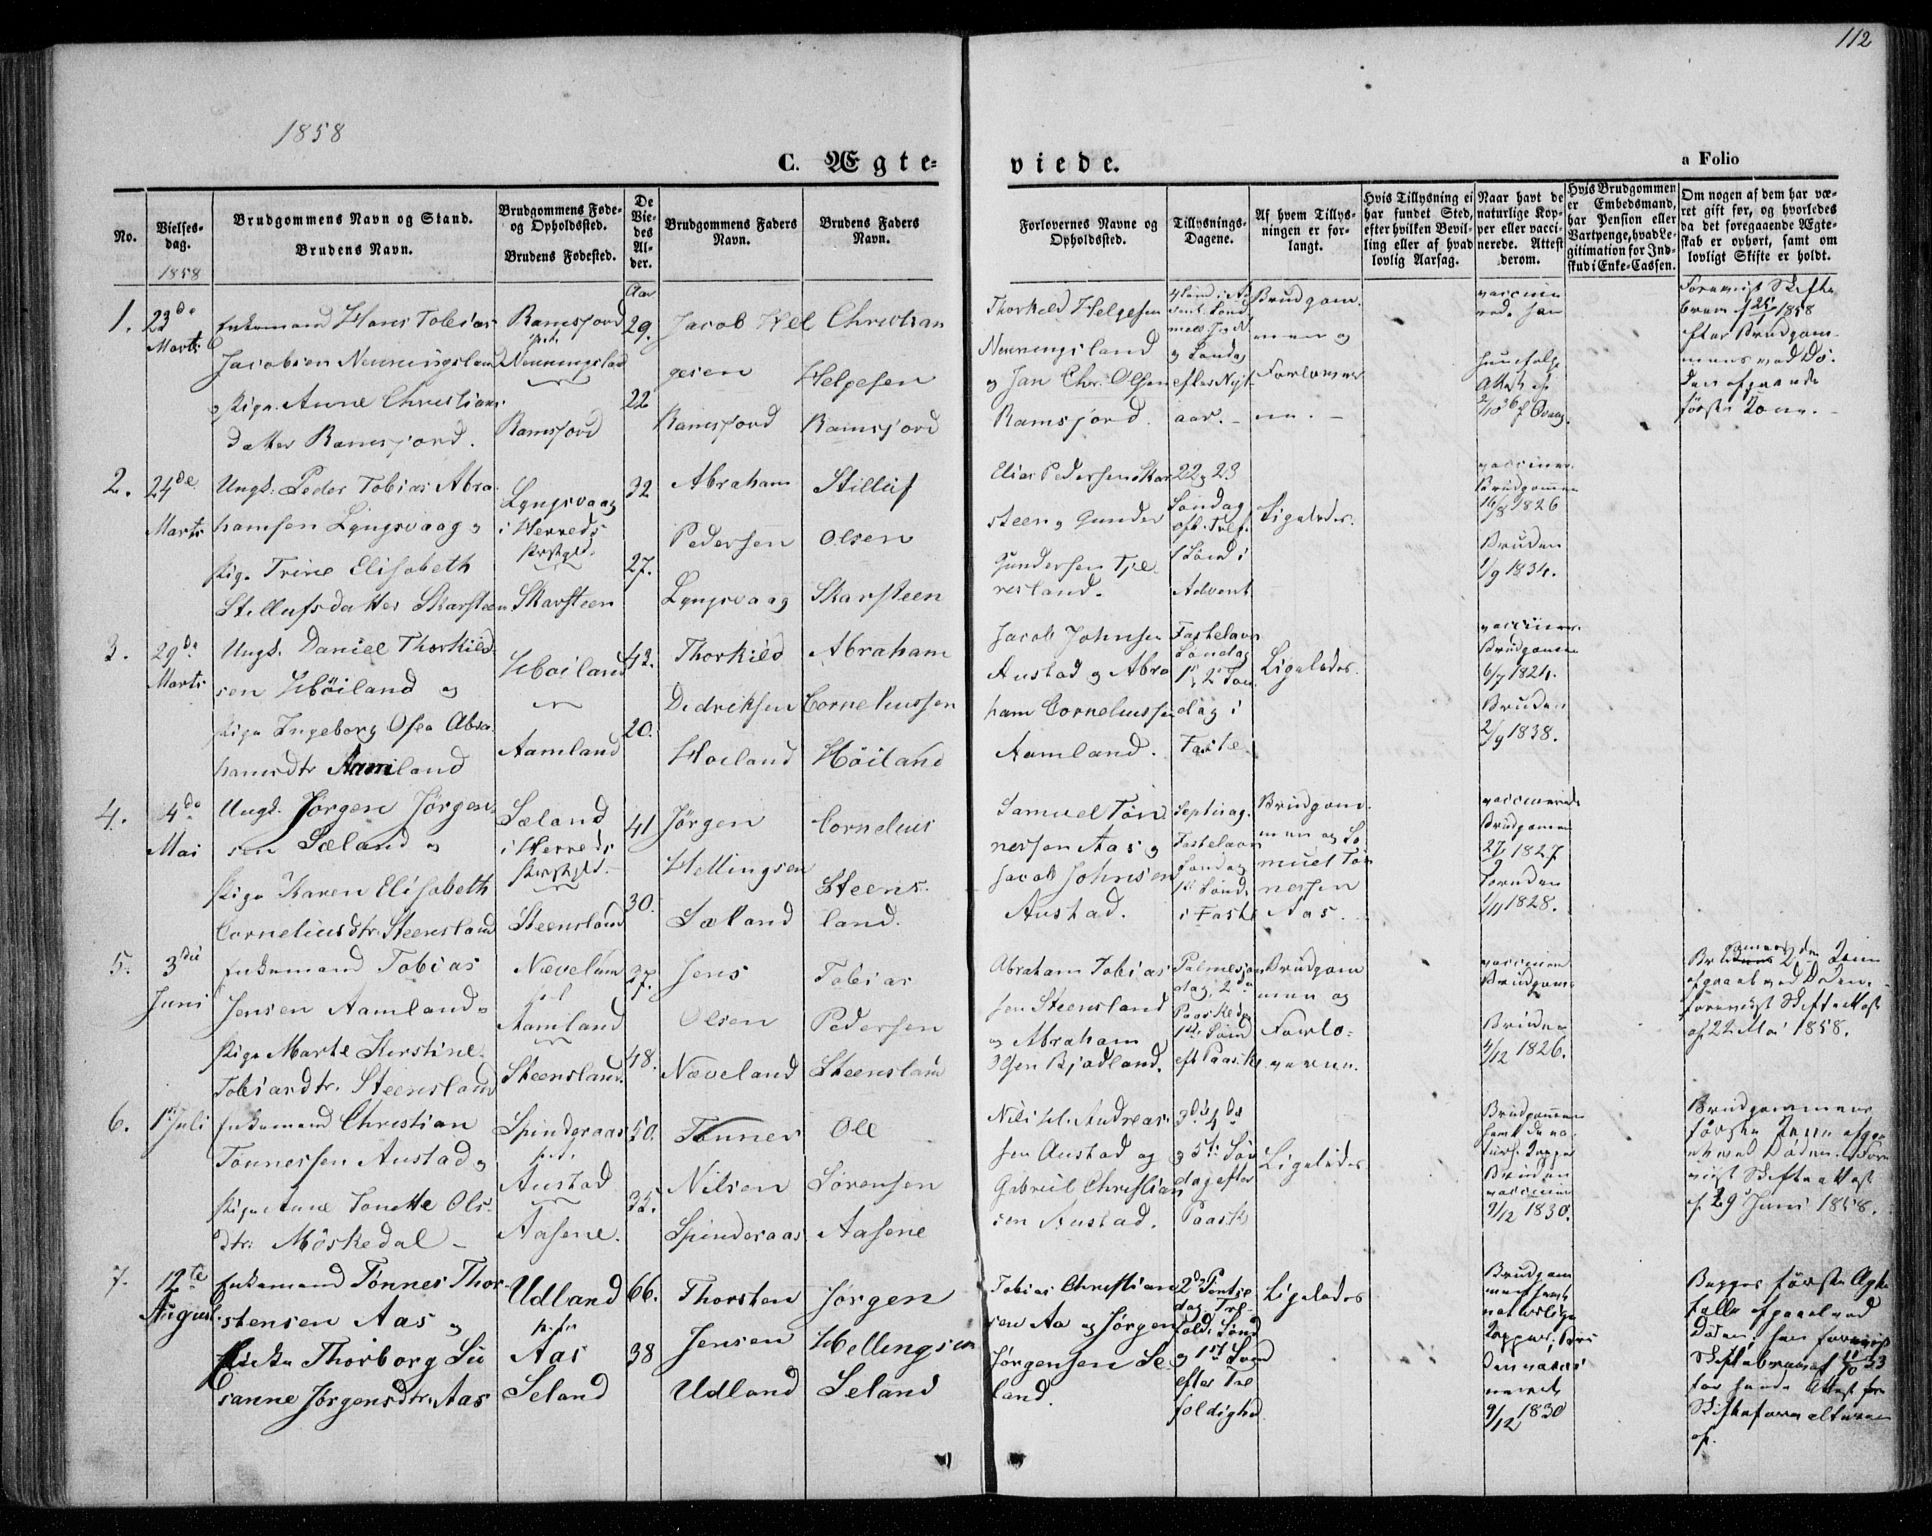 112
1858
C. Ægte-
viede.
a Folio
No.
Vielses-
dag.
1858
Brudgommens Navn og Stand.
Brudens Navn.
Brudgommens Føde-
og Opholdssted.
Brudens Fødested.
De
Vie-
des
Al-
der.
Brudgommens Faders
Navn.
Brudens Faders
Navn.
Forlovernes Navne og
Opholdssted.
Tillysnings-
Dagene.
Af hvem Tillys-
ningen er for-
langt.
Hvis Tillysning ei
har fundet Sted,
efter hvilken Bevil-
ling eller af hvad
lovlig Aarsag.
Naar havt de
naturlige Kop-
per eller vacci-
nerede. Attest
derom.
Hvis Brudgommen
er Embedsmand,
har Pension eller
Vartpenge, hvad Le-
gitimation for Ind-
skud i Enke-Cassen.
Om nogen af dem har væ-
ret gift før, og hvorledes
da det foregaaende Ægte-
skab er ophørt, samt om
lovligt Skifte er holdt.
Aar
1.
23de
Marts
Enkemand Hans Tobias
Jacobsen Nenningsland
og Pige Anne Christians
datter Ramsfjord.
Ramsfjord
Nenningsland
Ramsfjord
29.
22
Jacob Hel
gesen
Ramsfjord
Christian
Helgesen
Ramsfjord
Thorkild Helgesen
Nenningsland
og Jan Chr. Olsen
Ramsfjord.
og Søndag
efter Nyt
aar. -
Brudgom
men og
Forlover
ne. -
Foreviist Skifte
brev af 25/1 1858
efter Brudgom
mens ved Dø-
den afgaaede
første Kone. -
2.
24de
Marts
Ungk. Peder Tobias Abra
hamsen Lyngsvaag og
Pige Trine Elisabeth
Stillufsdatter Skarsteen
Lyngsvaag
i Herreds
Præstgld.
Skarsteen
32
27.
Abraham
Pedersen
Lyngsvaag
Stilluf
Olsen
Skarsteen
Elias Pedersen Skar
steen og Gunder
Gundersen Tje
resland.
22 og 23
Søndag
eft. Tref.
1 Sønd i
Advent
Ligeledes.
vacciner.
Brudgommen
16/8 1826
Bruden
1/9 1834.
3.
29de
Marts
Ungk. Daniel Thorkild
sen Høiland og
Pige Ingeborg Osea Abra
hamsdtr Aamland
Høiland
Aamland
42.
20.
Thorkild
Didriksen
Høiland
Abraham
Corneliussen
Høiland
Jacob Johnsen
Austad og Abra
ham Corneliussen
Aamland.
Fastelavn
Søndag
1ste og 2 Søn
dag i
Faste.
Ligeledes.
vacciner.
Brudgommen
6/7 1824.
Bruden
2/9 1838.
4.
4de
Mai
Ungk. Jørgen Jørgen
sen Sæland og
Pige Karen Elisabeth
Corneliusdtr. Steensland
Sæland
i Herreds
Præstgld.
Steensland
41
30.
Jørgen
Hellingsen
Sæland
Cornelius
Steens-
land.
Samuel Tøn
nessen Aas og
Jacob Johnsen
Austad.
Septuag.
Fastelavn
Søndag
1ste Sønd.
i Faste
Brudgom
men og Sa
muel Tøn
nessen
Aas.
vaccinerede
Brudgommen
1827
Bruden
1/11 1828.
5.
3die
Juni
Enkemand Tobias
Jensen Aamland og
Pige Marte Kirstine
Tobiasdtr. Steensland
Næveland
Aamland
Steensland
37.
48.
Jens
Olsen
Næveland
Tobias
Pedersen
Steensland
Abraham Tobias
sen Steensland
og Abraham
Olsen Bjadland.
Palmesøn
dag, 2den
Paaskedag
1ste Sønd
eft Paaske
Brudgom
men og
Forlo-
verne.
vaccineret
Brudgom.
Bruden
4/12 1826.
afgaaet ved Døden.
foreviist Skifteattest
af 22 Mai 1858.
6.
1 Juli
Enkemand Christian
Tønnessen Austad og
Pige Anne Tonette Ols
dtr. Møskedal -
Spinderaas
Austad
Aasene.
50.
35.
Tønnes
Nilsen
Spinderaas
Ole
Sørensen
Aasene
Nils H. Andreas
sen Austad og
Gabriel Christian
sen Austad.
3die 4de
og 5te Søn
dag efter
Paaske
Ligeledes
Brudgommen
havt de na-
turl. Kopper
Bruden
vacciner
9/12 1830.
Brudgommens
første Kone afgaa
et ved Døden. Fore
viist Skifteattest
af 29 Juni 1858.
7.
12te
August
Enkemand Tønnes Thor
stensen Aas og
Enke Thorborg Su
sanne Jørgensdtr. Aas
Udland
Aas
Seland
66.
38
Thorsten
Jensen
Udland
Jørgen
Hellingsen
Seland
Tobias Christian
sen Aa og Jørgen
Jørgensen Se
land.
2den Pintse
dag, Tre-
fold. Sønd
og 1ste Sønd
efter Tre
foldighed
Ligeledes
Brudgom
men havt
naturlige
Kopper, Bru
den vacci
neret
9/12 1830
Begges første Ægte
fælle afgaaet ved
Døden; han foreviist
Skiftebrev af 11/10 53
for hende Attest fra
Skifteforvalteren